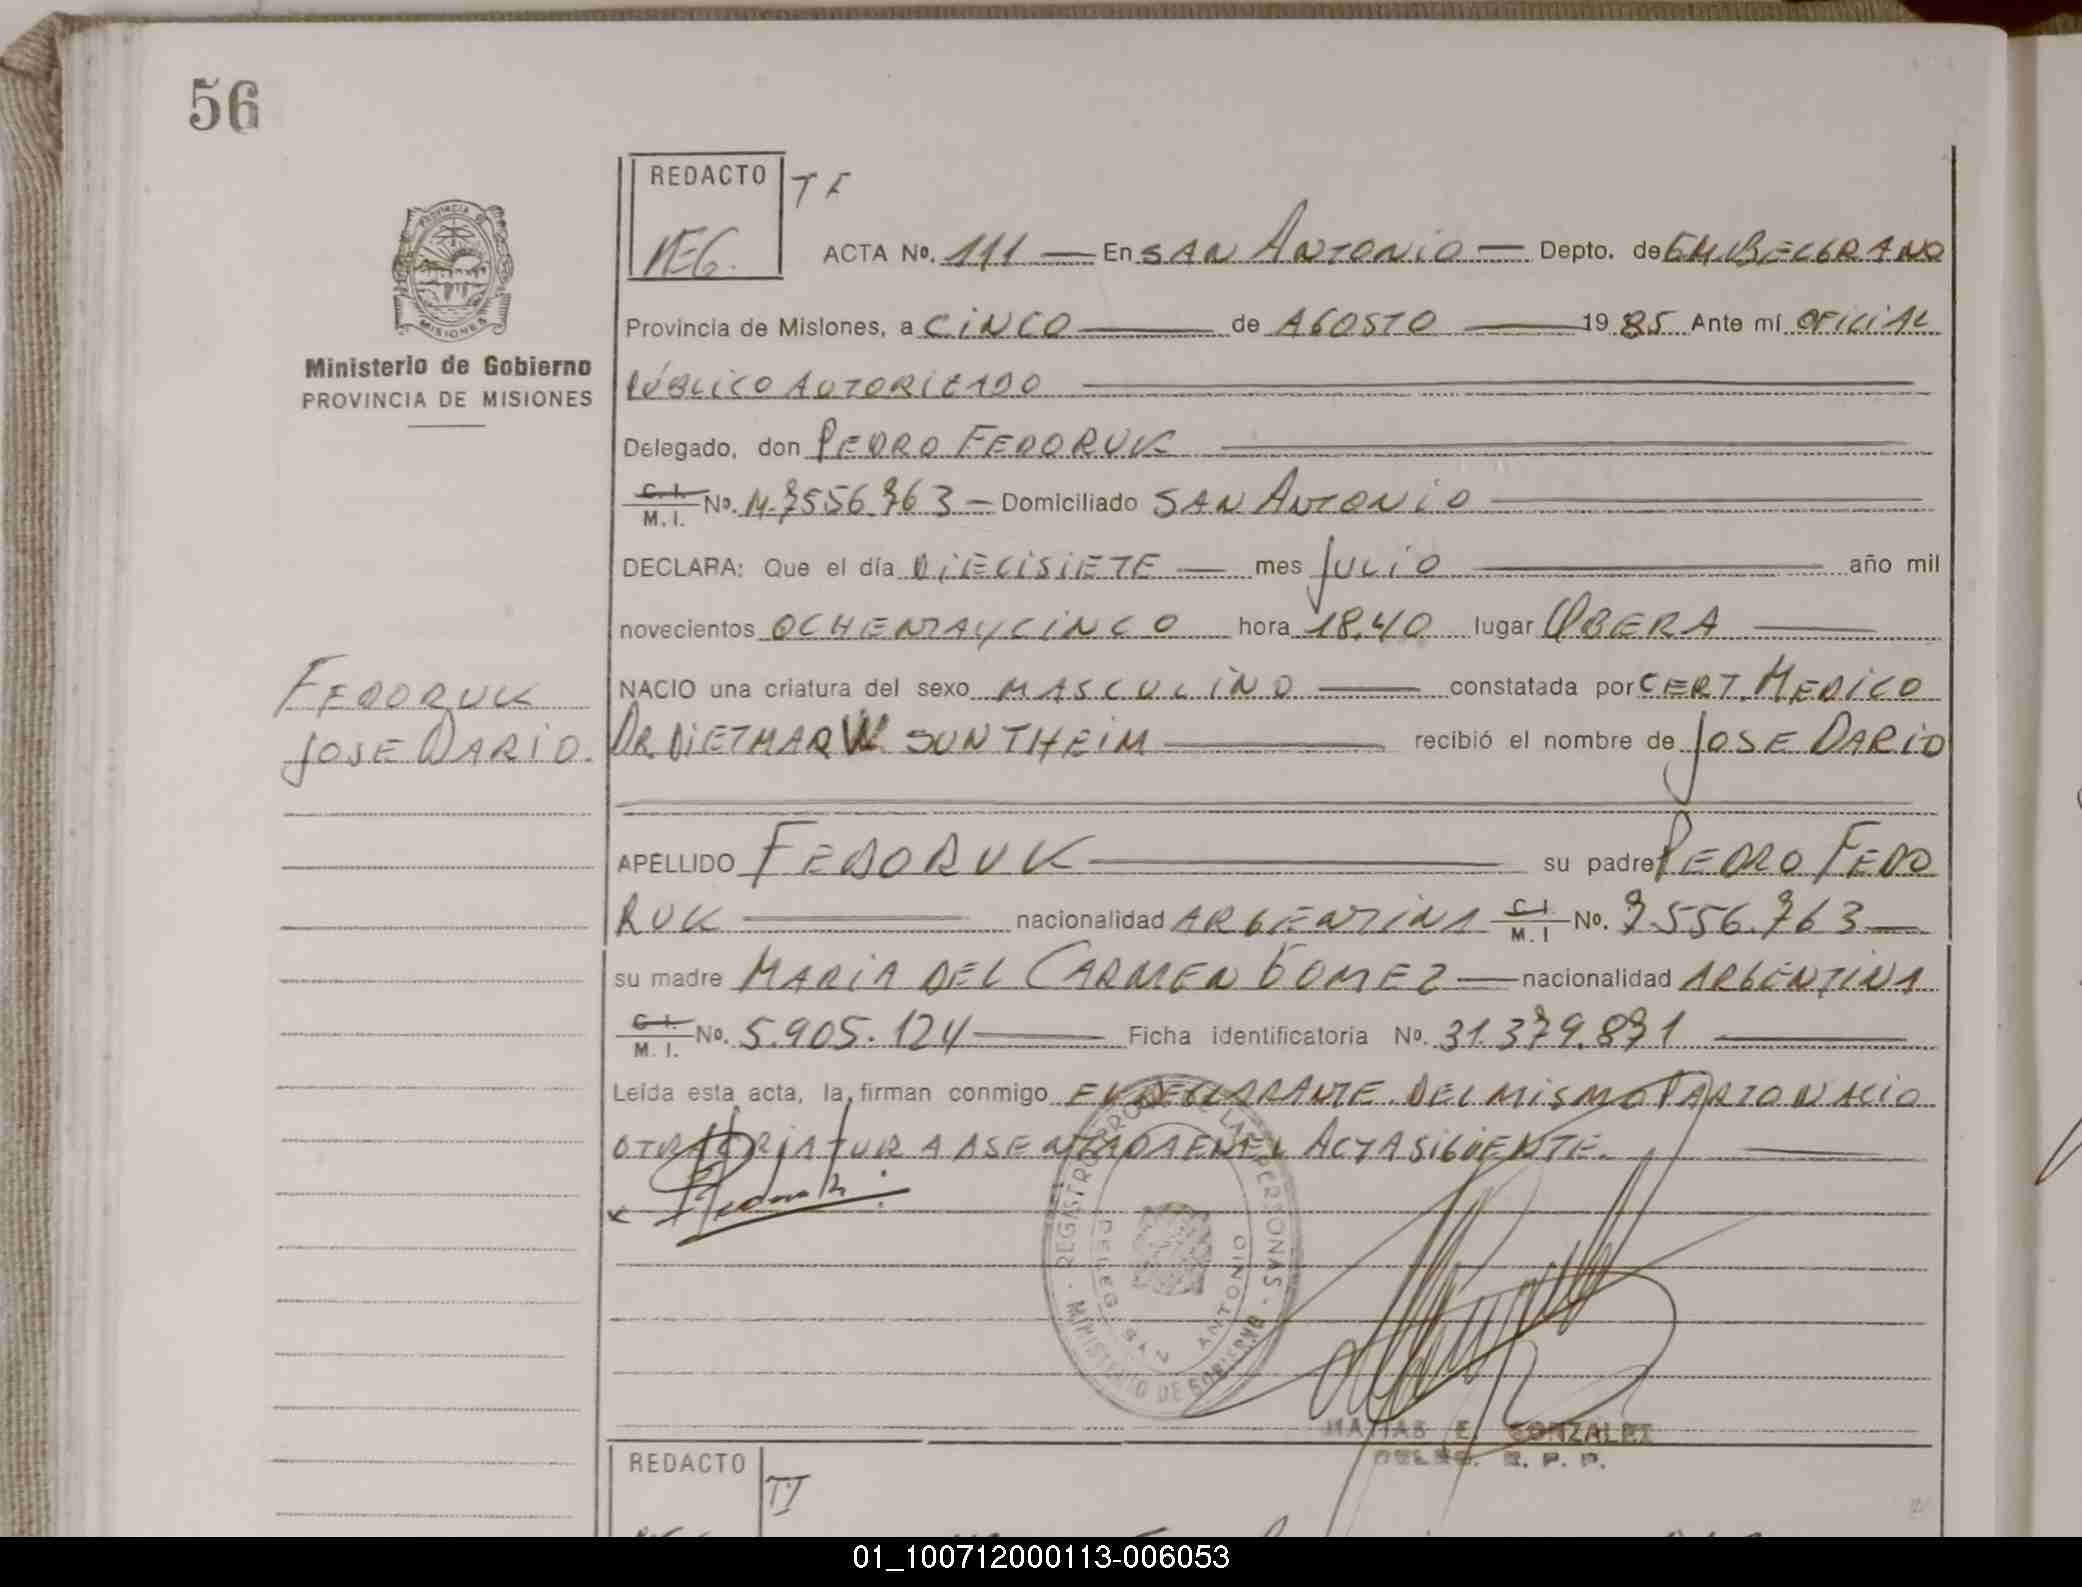 56
REDACTO
T F
MEG.
ACTA No. 111 — En SAN ANTONIO — Depto. de GM. BELGRANO
PROVINCIA DE MISIONES
Ministerio de Gobierno
PROVINCIA DE MISIONES
Provincia de Misiones, a CINCO — de AGOSTO — 1985 Ante mí OFICIAL
PÚBLICO AUTORIZADO
Delegado, don PEDRO FEDORUK
C. I. M. I. No. M. 7556.763 — Domiciliado SAN ANTONIO
DECLARA: Que el día DIECISIETE — mes JULIO — año mil
novecientos OCHENTA Y CINCO hora 18.40 lugar OBERA —
NACIO una criatura del sexo MASCULINO — constatada por CERT. MEDICO
FEDORUK
JOSE DARIO.
DR. DIETMAR W. SONTHEIM — recibió el nombre de JOSE DARIO
APELLIDO FEDORUK — su padre PEDRO FEDO
RUK — nacionalidad ARGENTINA C. I. M. I No. 7.556.763 —
su madre MARIA DEL CARMEN GOMEZ — nacionalidad ARGENTINA
C. I. M. I. No. 5.905.124 — Ficha identificatoria No. 31.379.871 —
Leída esta acta, la firman conmigo EL DECLARANTE. DEL MISMO PARTO NACIO
OTRA CRIATURA ASENTADA EN EL ACTA SIGUENTE. —
REGISTRO PROV. DE LAS PERSONAS
DELEG. SAN ANTONIO
MINISTERIO DE GOBIERNO
MATIAS E. GONZALEZ
DELEG. R. P. P.
REDACTO
01_100712000113-006053